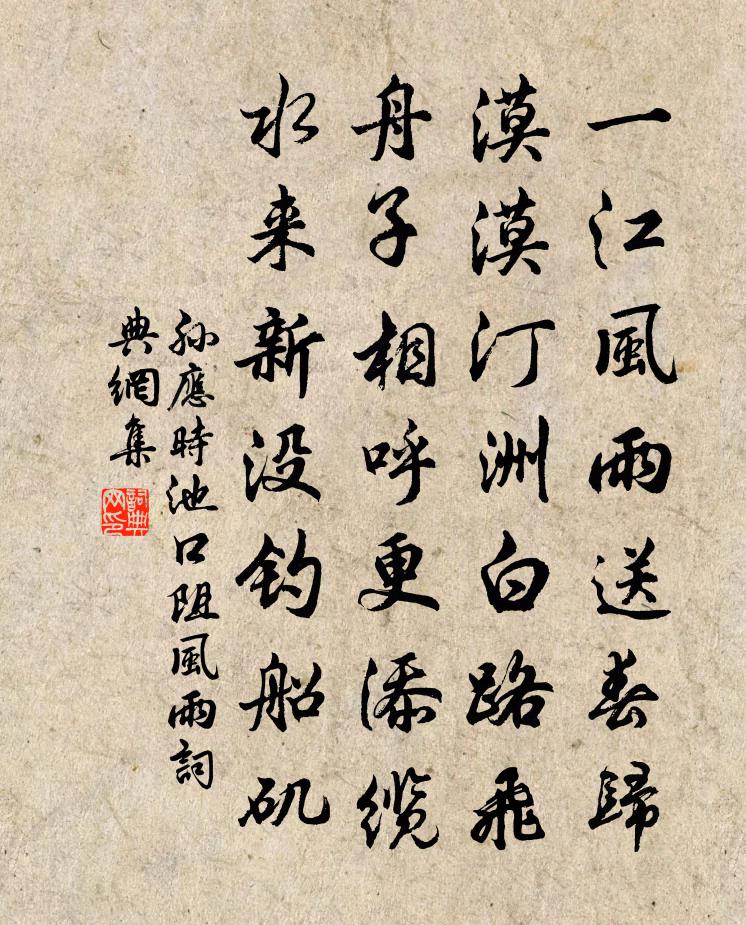 一江風雨送春歸
漠漠汀洲白路飛
舟子相呼更添缆
水来新没钓船矶
孙應時池口阻風雨詞
典網集
詞典网印